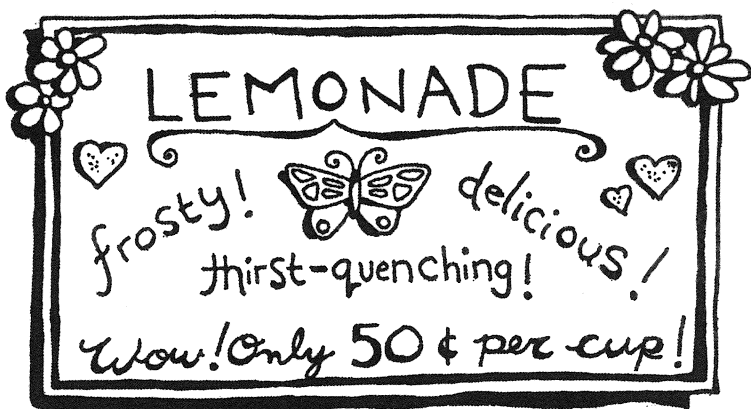 LEMONADE
frosty! delicious!
thirst-quenching!
Wow! Only 50¢ per cup!